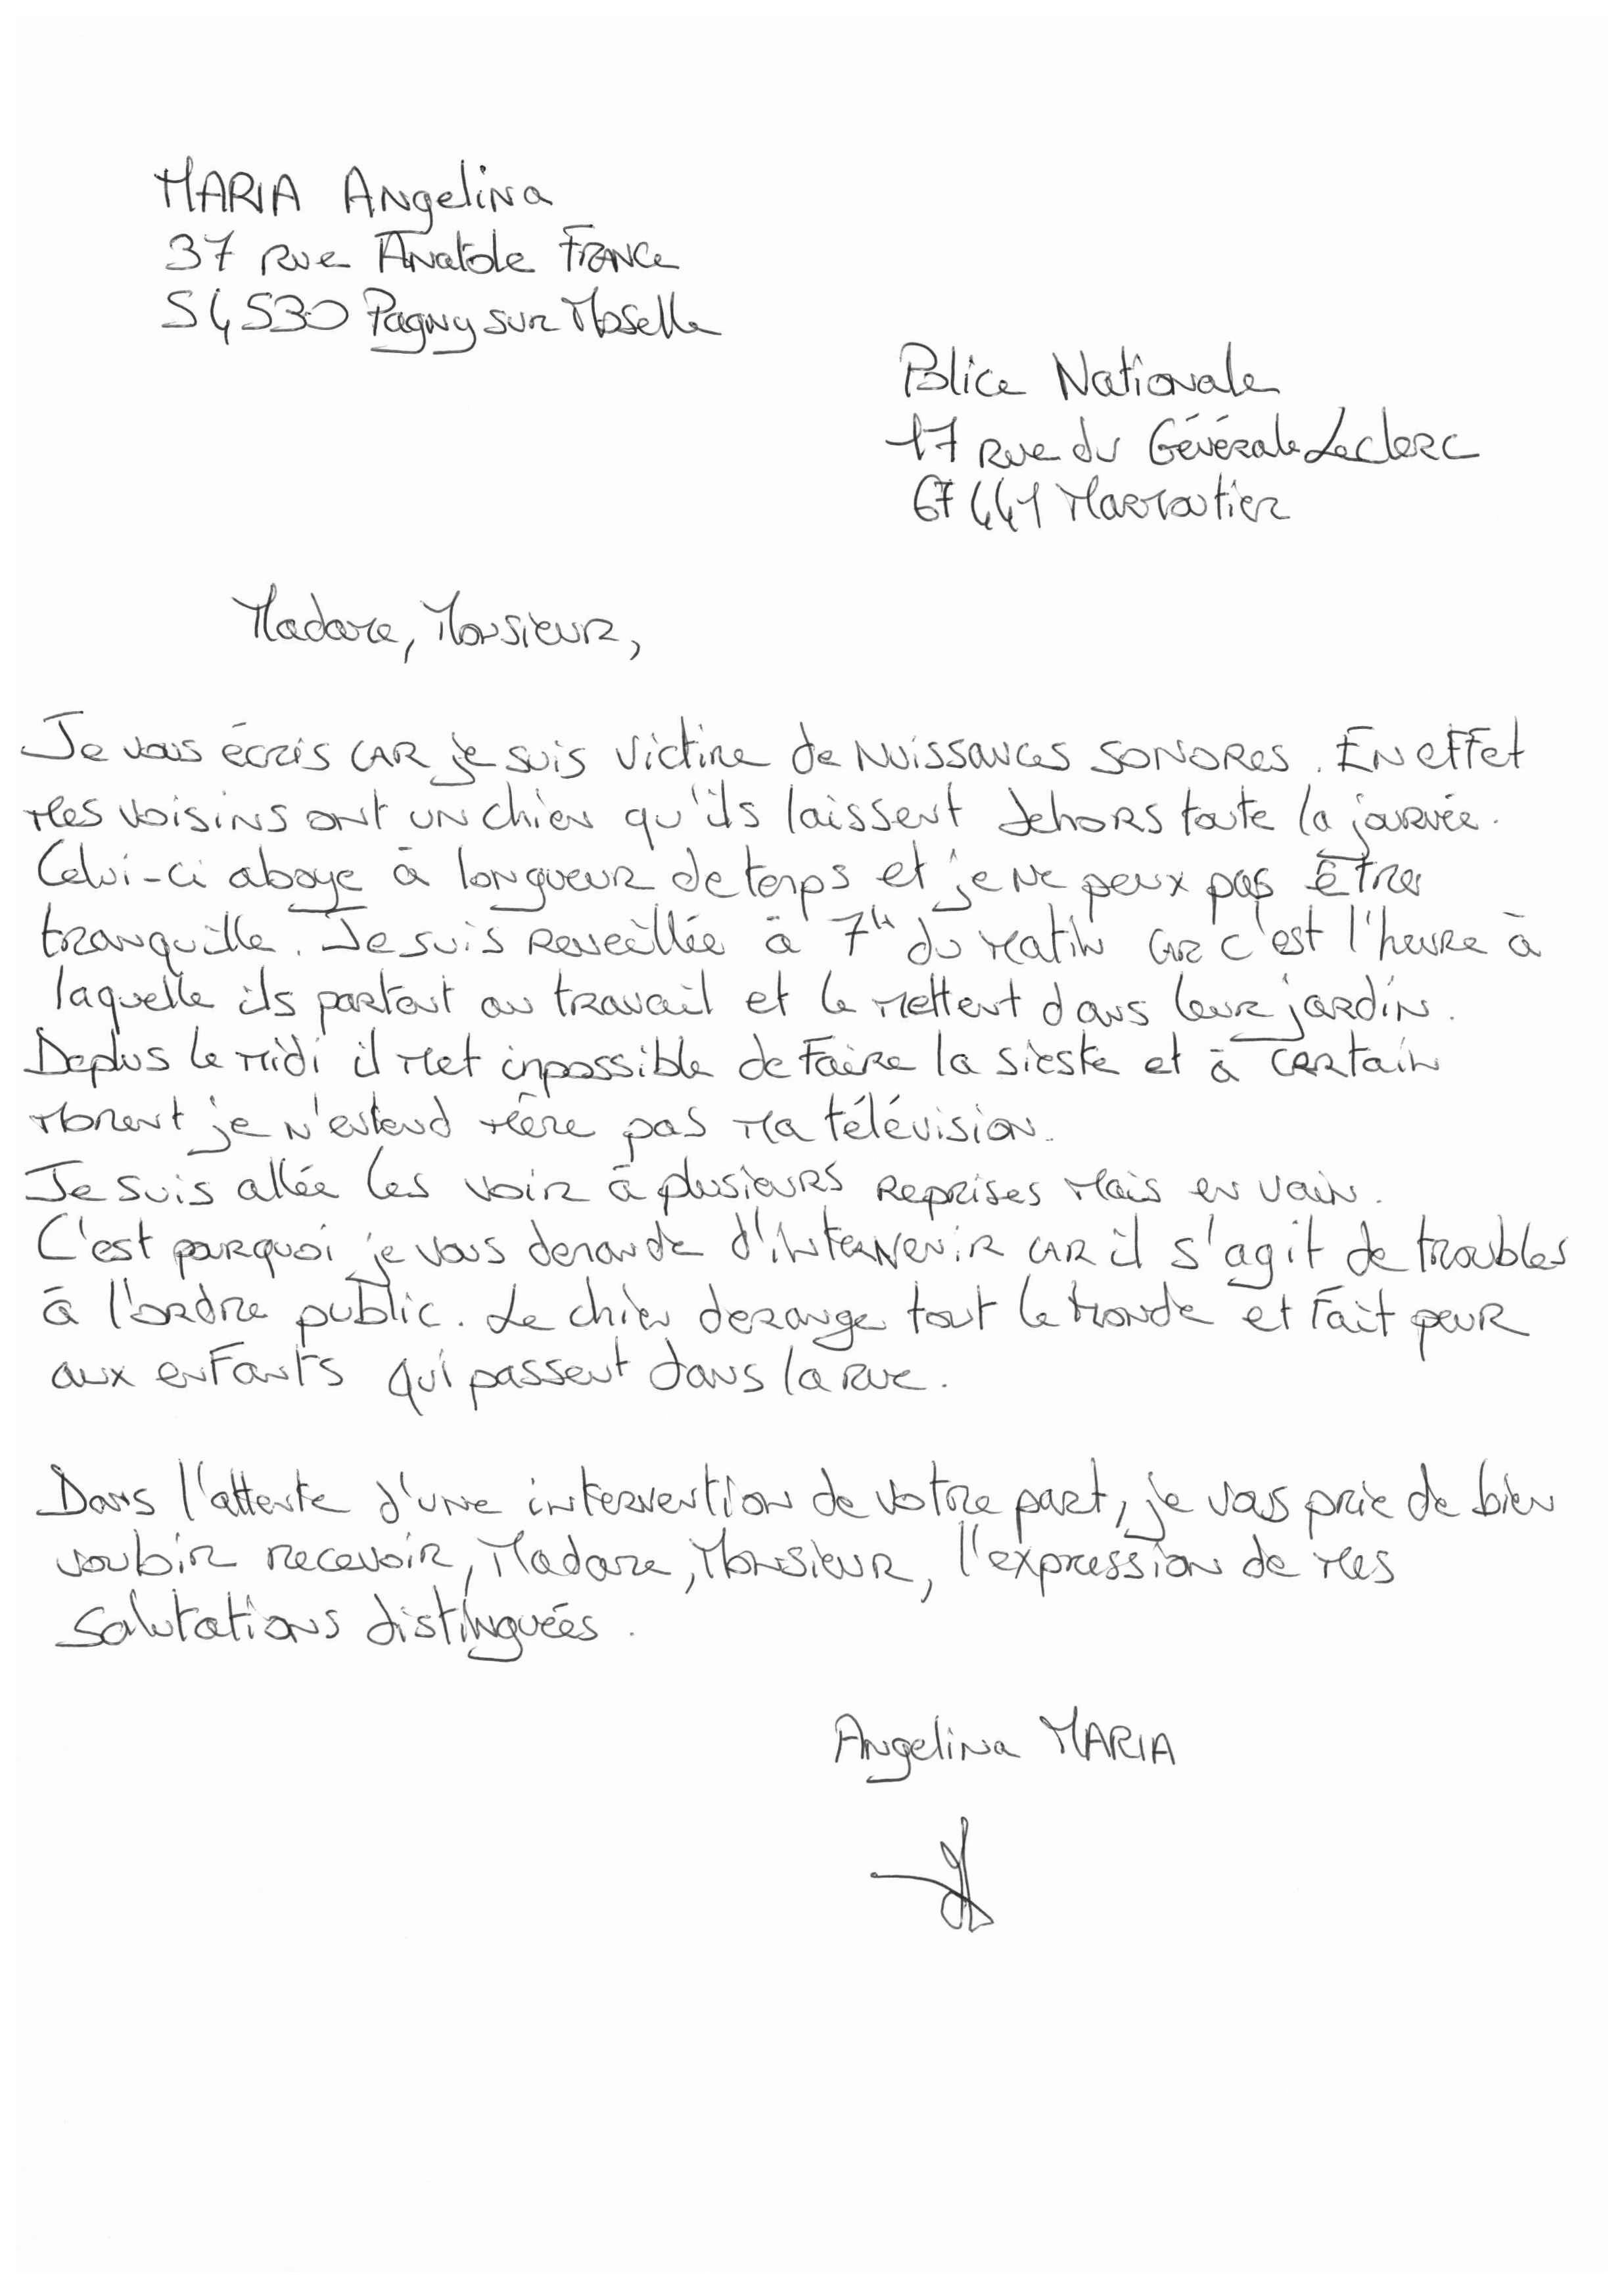 MARIA Angelina
37 rue Anatole France
54530 Pagny sur Moselle
Police Nationale
17 rue du Générale Leclerc
67441 Marmoutier
Madame, Monsieur,
Je vous écris car je suis victime de nuissances sonores. En effet
mes voisins ont un chien qu'ils laissent dehors toute la journée.
Celui-ci aboye à longueur de temps et je ne peux pas être
tranquille. Je suis reveillée à 7h du matin car c'est l'heure à
laquelle ils partent au travail et le mettent dans leur jardin.
De plus le midi il met impossible de faire la sieste et à certain
moment je n'entend même pas ma télévision.
Je suis allée les voir à plusieurs reprises mais en vain.
C'est pourquoi je vous demande d'intervenir car il s'agit de troubles
à l'ordre public. Le chien derange tout le monde et fait peur
aux enfants qui passent dans la rue.
Dans l'attente d'une intervention de votre part, je vous prie de bien
vouloir recevoir, Madame, Monsieur, l'expression de mes
salutations distinguées.
Angelina MARIA